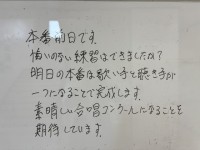 本番前日です。
悔いのない練習はできましたか?
明日の本番は歌い手と聴き手が
一つになることで完成します。
素晴しい合唱コンクールになることを
期待しています。